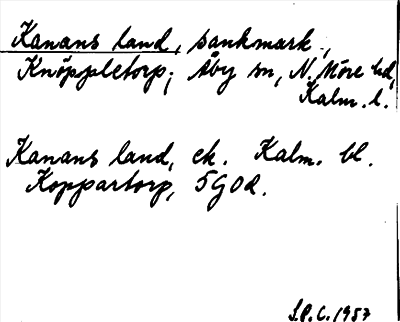 Kanans land, sankmark.,
Knöppletorp; Åby sn, N. Möre hd,
Kalm. l.
Kanans land, ek. Kalm. bl.
Koppartorp, 5G0d.
S.P.C. 1957